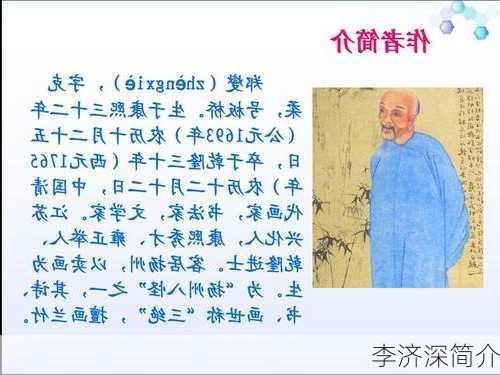 作者简介
郑燮（zhèngxiè），字克
柔，号板桥。生于康熙三十二年
（公元1693年）农历十月二十五
日，卒于乾隆三十年（西元1765
年）农历十二月十二日，中国清
代画家，书法家，文学家。江苏
兴化人，康熙秀才、雍正举人、
乾隆进士。客居扬州，以卖画为
生。为“扬州八怪”之一，其诗、
书、画世称“三绝”，擅画兰竹。
李济深简介